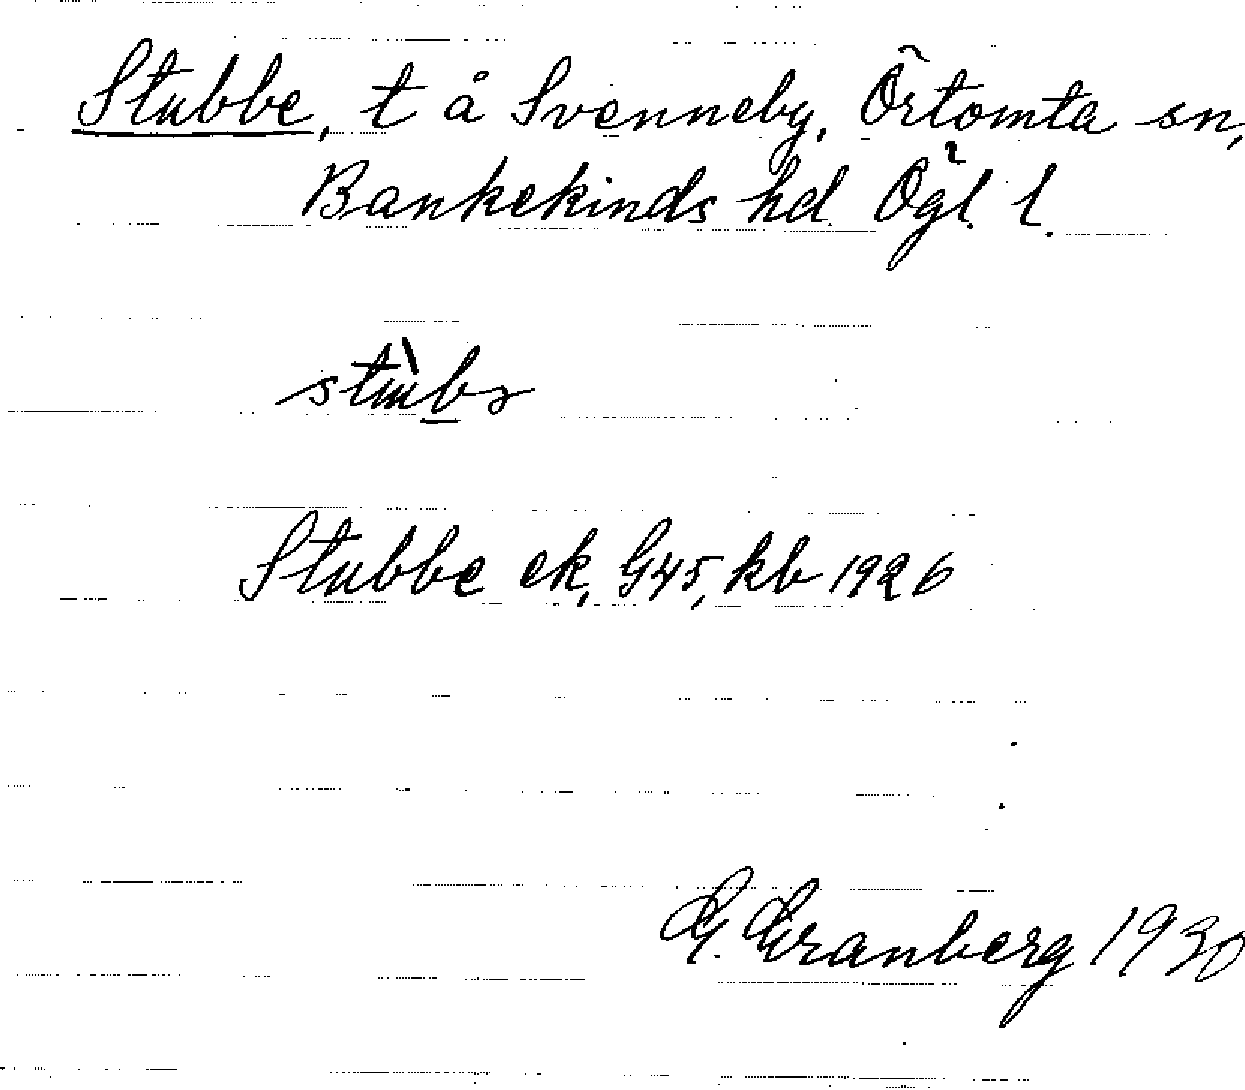 Stubbe, t å Svenneby, Örtomta sn,
Bankekinds hd Ögl. l.
Stubbe ek, G45, kb 1926
G. Granberg 1930